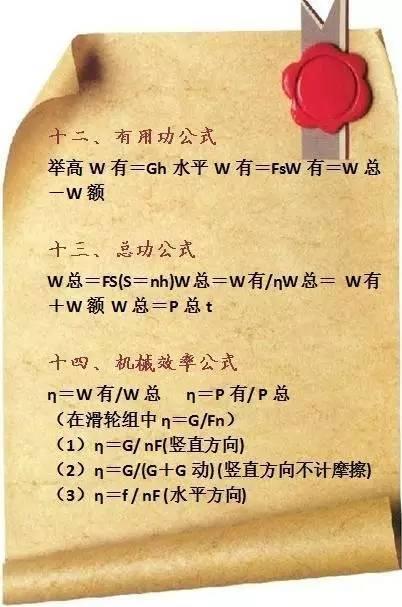 十二、有用功公式
举高 W 有＝Gh 水平 W 有＝FsW 有＝W 总
－W 额
十三、总功公式
W总＝FS(S＝nh)W总＝W有/ηW总＝ W有
＋W 额 W 总＝P 总 t
十四、机械效率公式
η＝W 有/W 总 η＝P 有/ P 总
（在滑轮组中 η＝G/Fn）
（1）η＝G/ nF(竖直方向)
（2）η＝G/(G＋G 动) (竖直方向不计摩擦)
（3）η＝f / nF (水平方向)